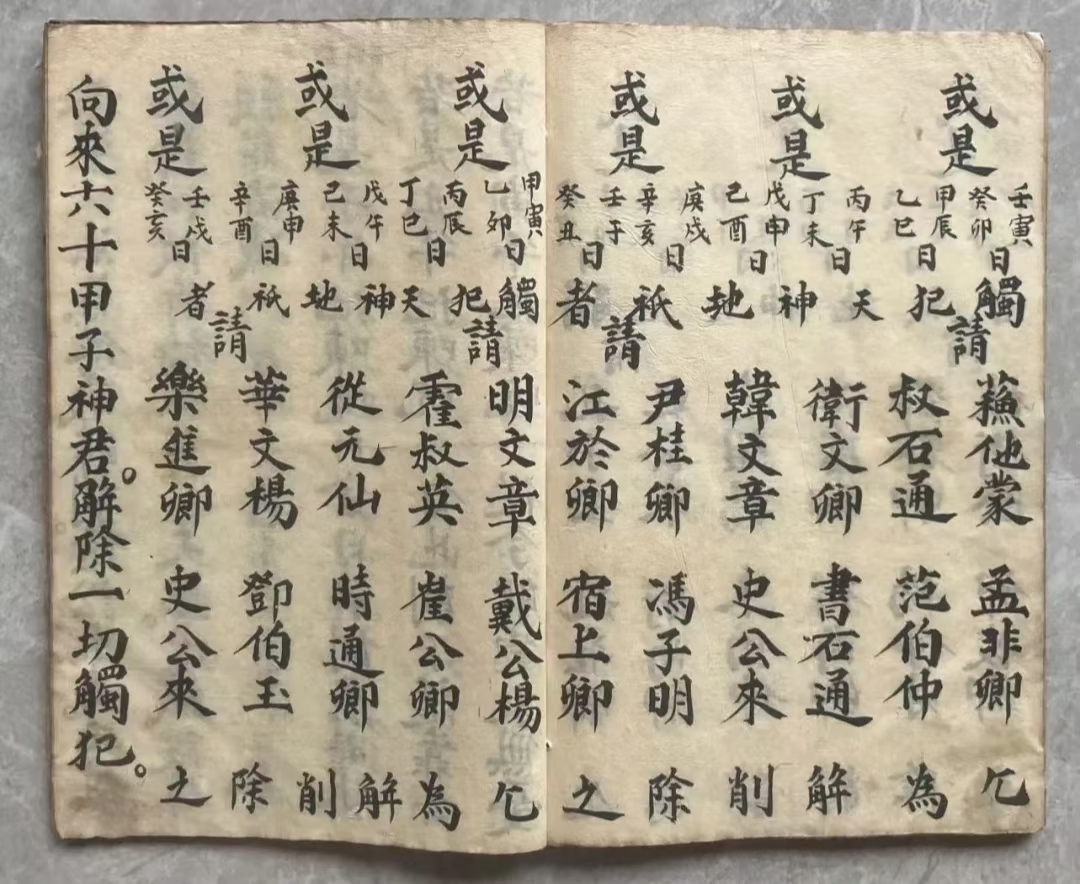 或是壬寅癸卯日觸請蘓他蒙孟非卿乞
甲辰乙巳日犯叔石通范伯仲為
或是丙午丁未日天衛文卿書石通解
戊申己酉日神地韓文章史公來削
或是庚戌辛亥日祇請尹桂卿馮子明除
壬子癸丑日者江於卿宿上卿之
或是甲寅乙卯日觸請明文章戴公楊乞
丙辰丁巳日犯天霍叔英崔公卿為
或是戊午己未日神地從元仙時通卿解削
庚申辛酉日祇請華文楊鄧伯玉除
或是壬戌癸亥日者樂進卿史公來之
向來六十甲子神君。解除一切觸犯。